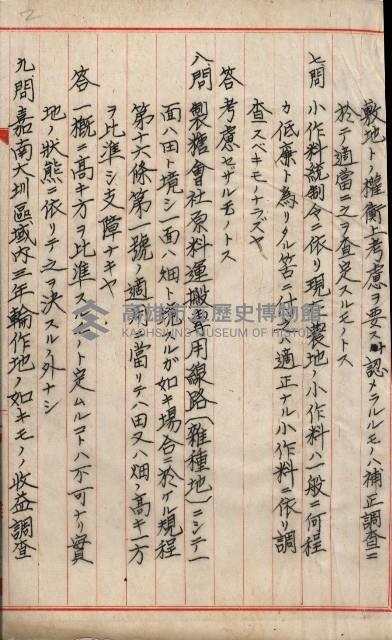 敷地ト權衡上考慮ヲ要スト認メラルルモノハ補正調査ニ
於テ適當ニ之ヲ査定スルモノトス
七、問 小作料統制令ニ依リ現ニ農地ノ小作料ハ一般ニ何程
カ低廉ト為リタル筈ニ付 適正ナル小作料ニ依リ調
査スベキモノナラズヤ
答 考慮セザルモノトス
八、問 製糖會社原料運搬專用線路(雜種地)ニシテ一
面ハ田ト境シ一面ハ畑ト境スルガ如キ場合ニ於ケル規程
第十六條第一號ノ適用ニ當リテハ田又ハ畑ノ高キ一方
ヲ比準シ支障ナキヤ
答 一概ニ高キ方ヲ比準スルモノト定ムルコトハ不可ナリ實
地ノ狀態ニ依リテ之ヲ決スルノ外ナシ
九、問 嘉南大圳區域內三年輪作地ノ如キモノノ收益調查
高雄市立歷史博物館
KAOHSIUNG MUSEUM OF HISTORY
2